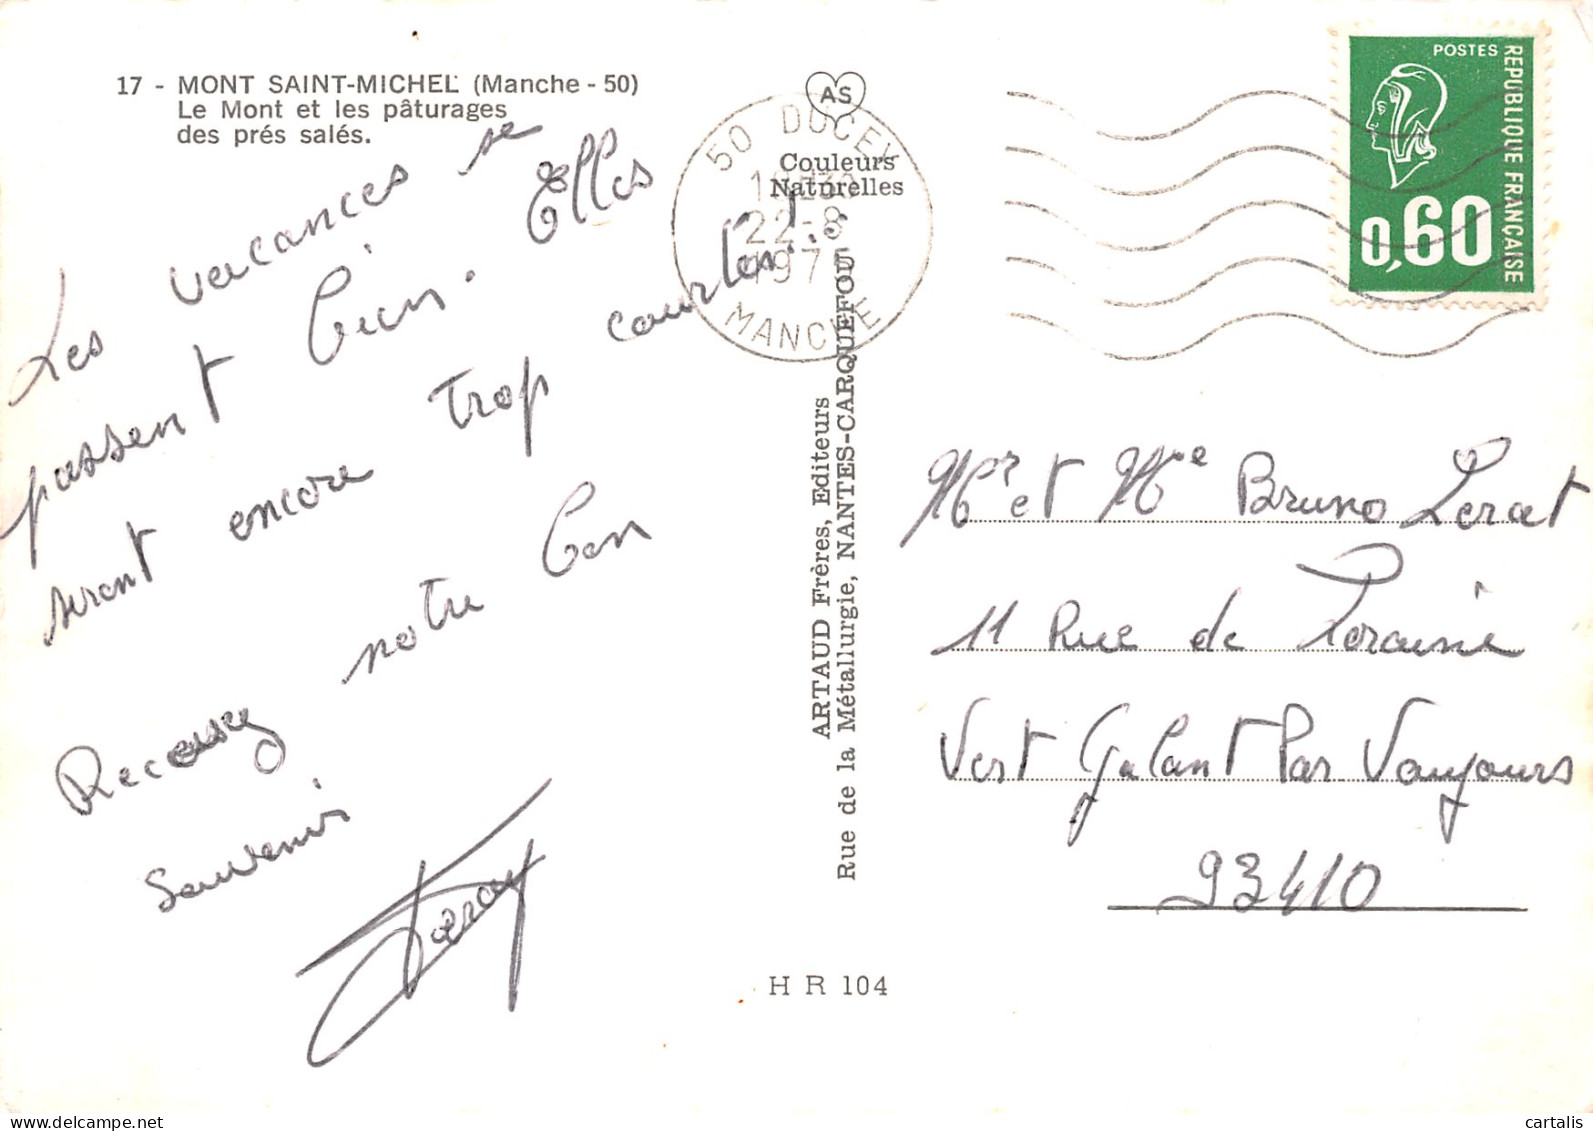 17 - MONT SAINT-MICHEL (Manche - 50)
Le Mont et les pâturages
des prés salés.
Les vacances se
passent bien. Elles
seront encore trop courtes!..
Recevez notre bon
souvenir
AS
Couleurs
Naturelles
50 DUCEY
22-8
MANCHE
ARTAUD Frères, Editeurs
Rue de la Métallurgie, NANTES-CARQUEFOU
H R 104
POSTES
REPUBLIQUE FRANÇAISE
0,60
Mr et Me Bruno Lerat
11 Rue de Loraine
Vert Galant Par Vaujours
93410
www.delcampe.net
cartalis